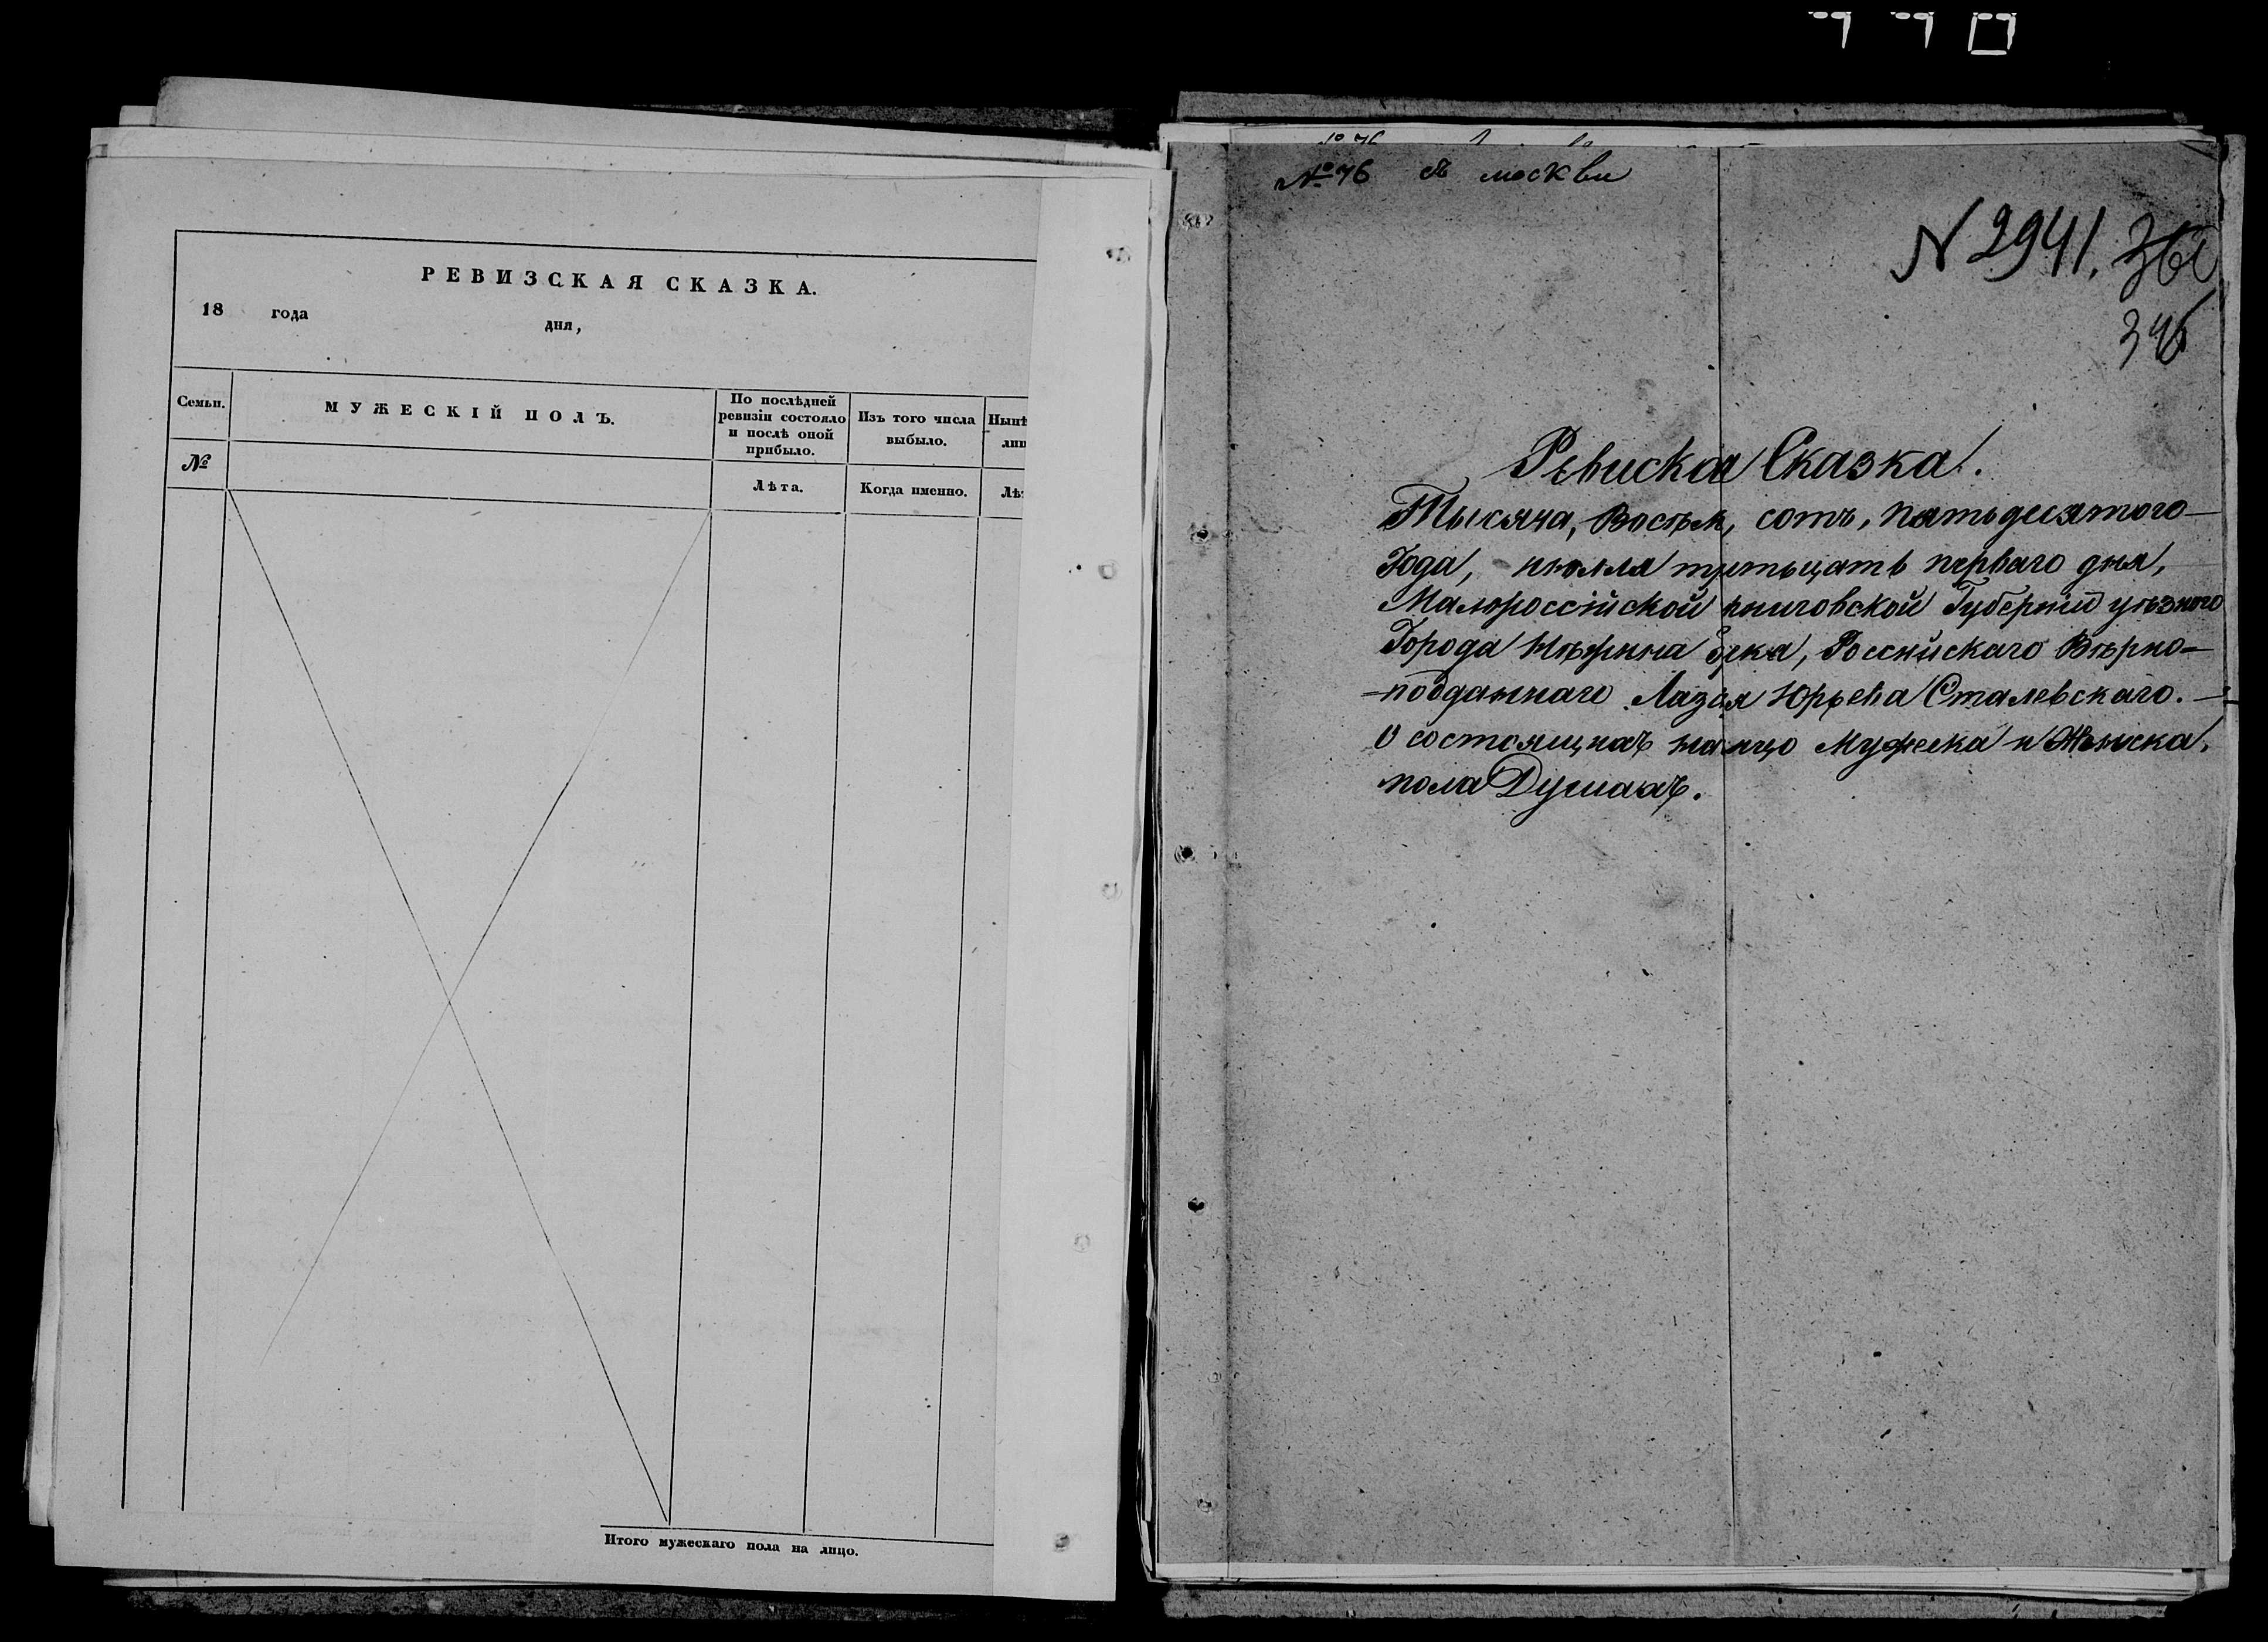 РЕВИЗСКАЯ СКАЗКА.
18 года дня,
Семьи.
МУЖЕСКІЙ ПОЛЪ.
По послѣдней
ревизіи состояло
и послѣ оной
прибыло.
Изъ того числа
выбыло.
Нынѣ
лиц
№
Лѣта.
Когда именно.
Лѣт
Итого мужескаго пола на лицо.
№ 76 москви
N 2941.
346
Ревиская Сказка.
Тысяча, Восѣм, сотъ, пятьдесятого
Года, июлля тритьцать перваго дня,
Малороссійской Губерніи уѣзного
Города Нѣжина Грка, Россійскаго Вѣрно-
-подданнаго Юрьева Сталевскаго.
О состоящихъ налицо Мужеска и Женска,
пола Душахъ.